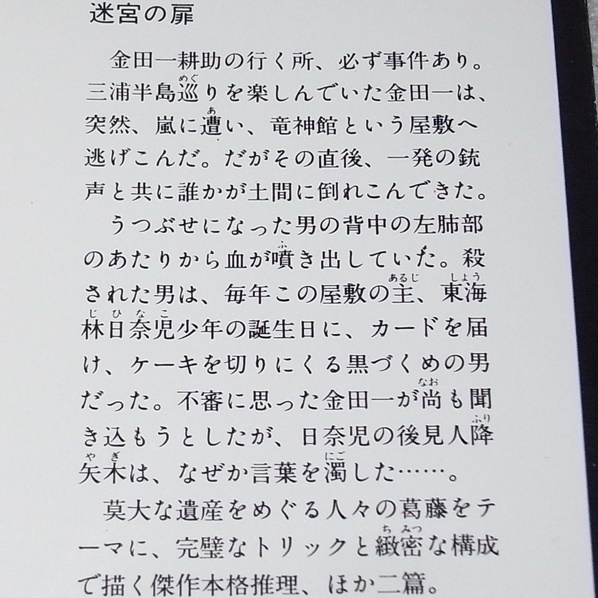 迷宮の扉
金田一耕助の行く所、必ず事件あり。
三浦半島巡りを楽しんでいた金田一は、
突然、嵐に遭い、竜神館という屋敷へ
逃げこんだ。だがその直後、一発の銃
声と共に誰かが土間に倒れこんできた。
うつぶせになった男の背中の左肺部
のあたりから血が噴き出していた。殺
された男は、毎年この屋敷の主、東海
林日奈児少年の誕生日に、カードを届
け、ケーキを切りにくる黒づくめの男
だった。不審に思った金田一が尚も聞
き込もうとしたが、日奈児の後見人降
矢木は、なぜか言葉を濁した……。
莫大な遺産をめぐる人々の葛藤をテ
ーマに、完璧なトリックと緻密な構成
で描く傑作本格推理、ほか二篇。